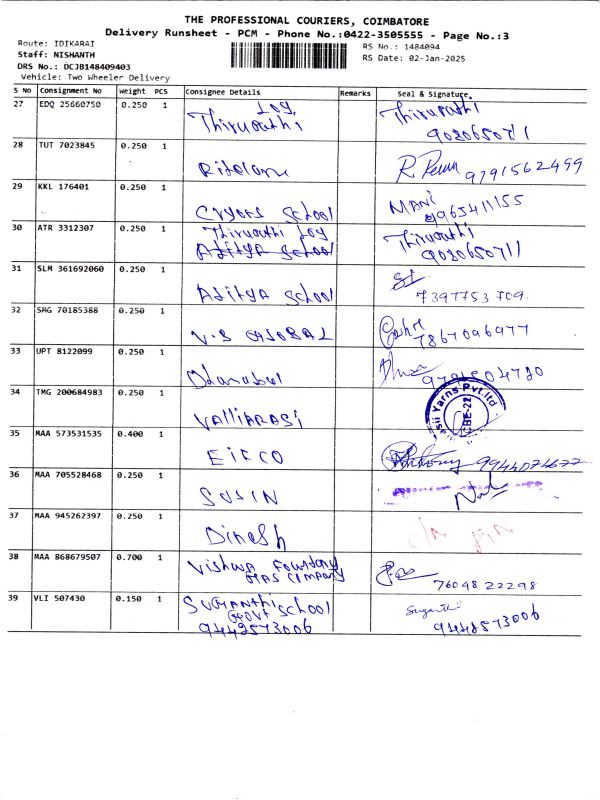 THE PROFESSIONAL COURIERS, COIMBATORE
Delivery Runsheet - PCM - Phone No.:0422-3505555 - Page No.:3
Route: IDIKARAI
RS No.: 1484094
Staff: NISHANTH
DRS No.: DCJB148409403
RS Date: 02-Jan-2025
Vehicle: Two Wheeler Delivery
S No Consignment No Weight PCS Consignee Details Remarks Seal & Signature
27 EDQ 25660750 0.250 1 Thirupathi Thirupathi
9020650711
28 TUT 7023845 0.250 1 9791562499
29 KKL 176401 0.250 1 Cryors School MANI
9965411155
30 ATR 3312307 0.250 1 Thirupathi Log Thirupathi
Aditya School 9020650711
31 SLM 361692060 0.250 1 Aditya School 7397753709
32 SMG 70185388 0.250 1 V.S GLOBAL 7867096977
33 UPT 8122099 0.250 1 Dhanabal 9791504780
34 TMG 200684983 0.250 1 Valliarasi Yarns Pvt.ltd
CBE-22
35 MAA 573531535 0.400 1 EIFCO 9944074677
36 MAA 705528468 0.250 1 SUSIN
37 MAA 945262397 0.250 1 Dinesh
38 MAA 868679507 0.700 1 Vishwa Foundary
GAS Company 7604822298
39 VLI 507430 0.150 1 SUGANTHI School
GOVT
9442573006 9442573006